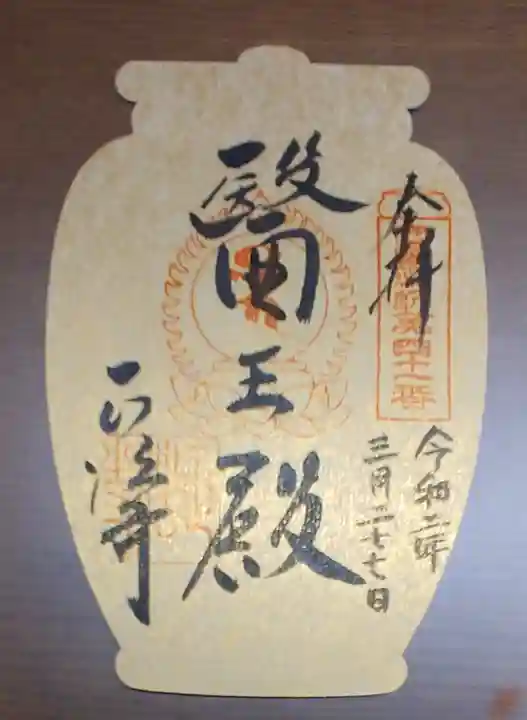 奉拝
第四十二番
醫王殿
令和二年
三月二十七日
正法寺